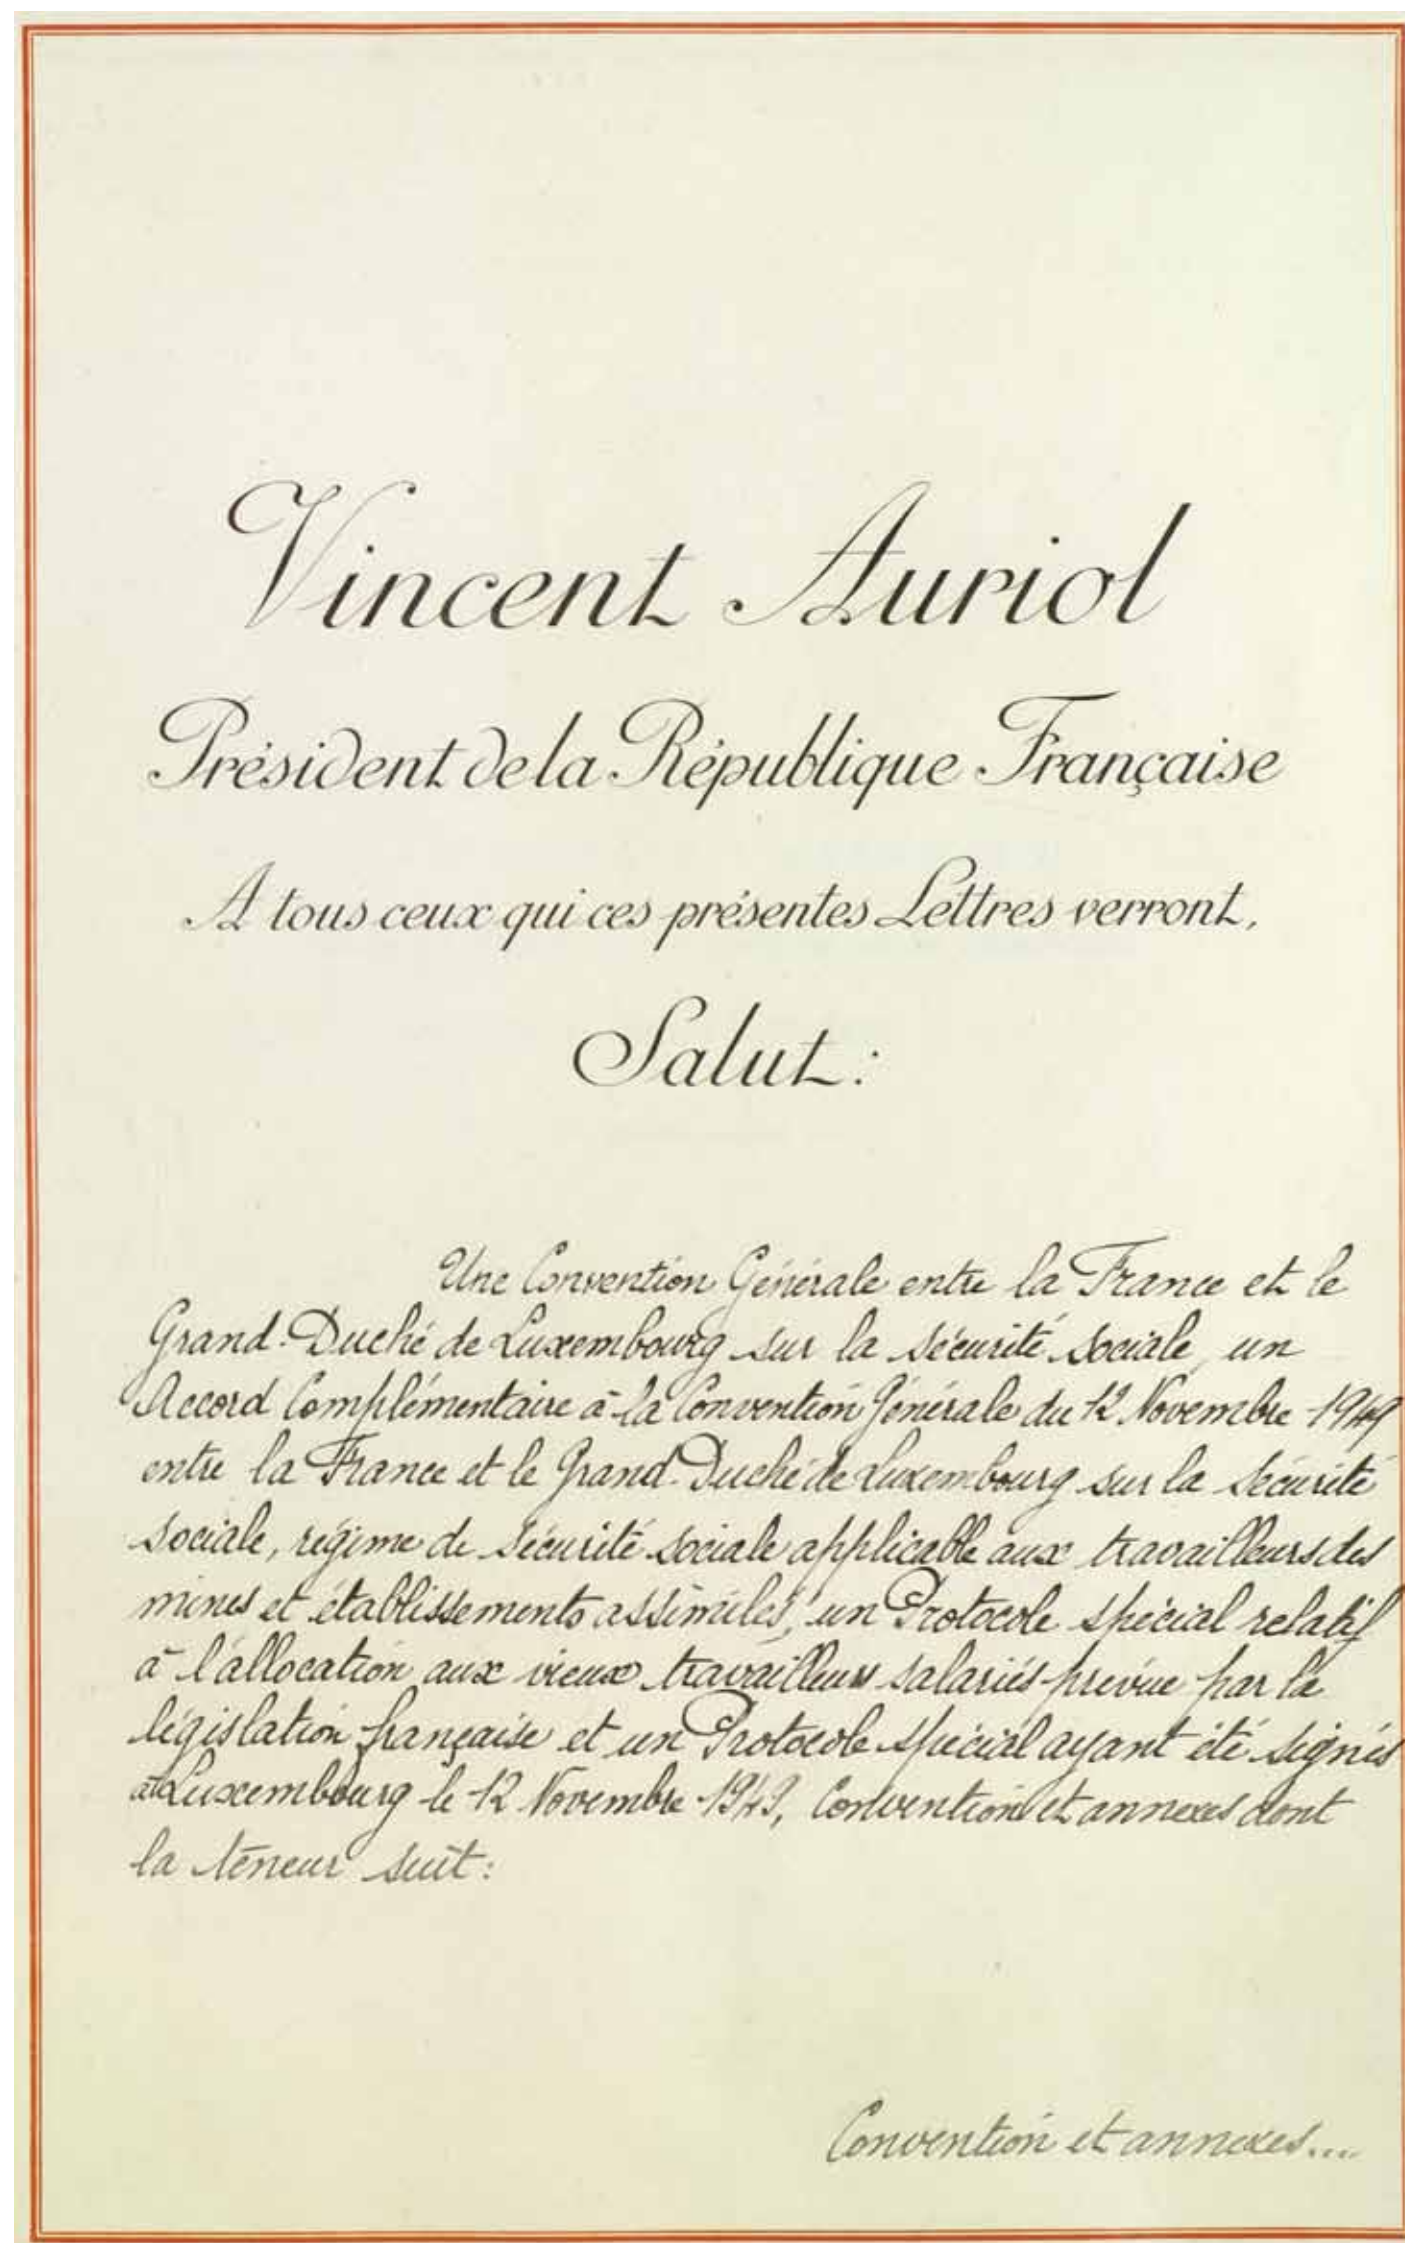 Vincent Auriol
Président de la République Française
A tous ceux qui ces présentes Lettres verront,
Salut:
Une Convention Générale entre la France et le
Grand-Duché de Luxembourg sur la sécurité sociale, un
Accord Complémentaire à la Convention Générale du 12 Novembre 1949
entre la France et le Grand-Duché de Luxembourg sur la sécurité
sociale, régime de sécurité sociale applicable aux travailleurs des
mines et établissements assimilés, un Protocole spécial relatif
à l'allocation aux vieux travailleurs salariés prévue par la
législation française et un Protocole spécial ayant été signés
à Luxembourg le 12 Novembre 1949, Convention et annexes dont
la teneur suit:
Convention et annexes...